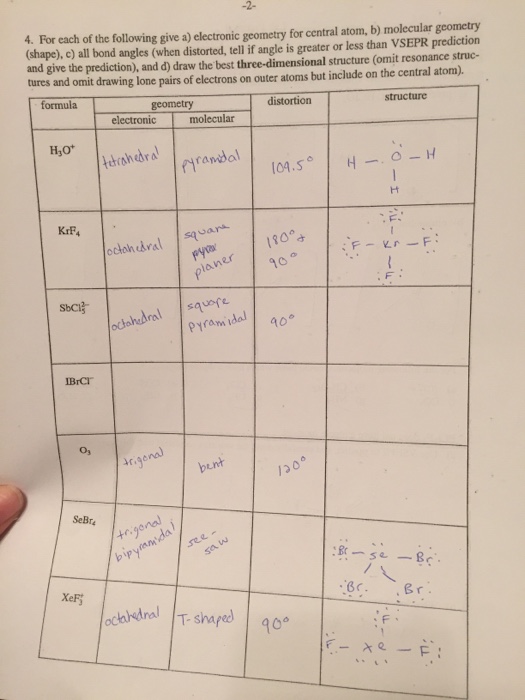 -2-
4. For each of the following give a) electronic geometry for central atom, b) molecular geometry
(shape), c) all bond angles (when distorted, tell if angle is greater or less than VSEPR prediction
and give the prediction), and d) draw the best three-dimensional structure (omit resonance struc-
tures and omit drawing lone pairs of electrons on outer atoms but include on the central atom).
formula geometry distortion structure
electronic molecular
H₃O⁺ tetrahedral pyramidal 109.5° H - O - H
H
F
KrF₄ octahedral square 180° +
planer 90° F - Kr - F
F
SbCl₅²⁻ octahedral square
pyramidal 90°
IBrCl⁻
O₃ trigonal bent 120°
SeBr₄ trigonal
bipyramidal see-
saw Br - Se - Br
Br Br
F
XeF₃⁺ octahedral T-shaped 90° F - Xe - F